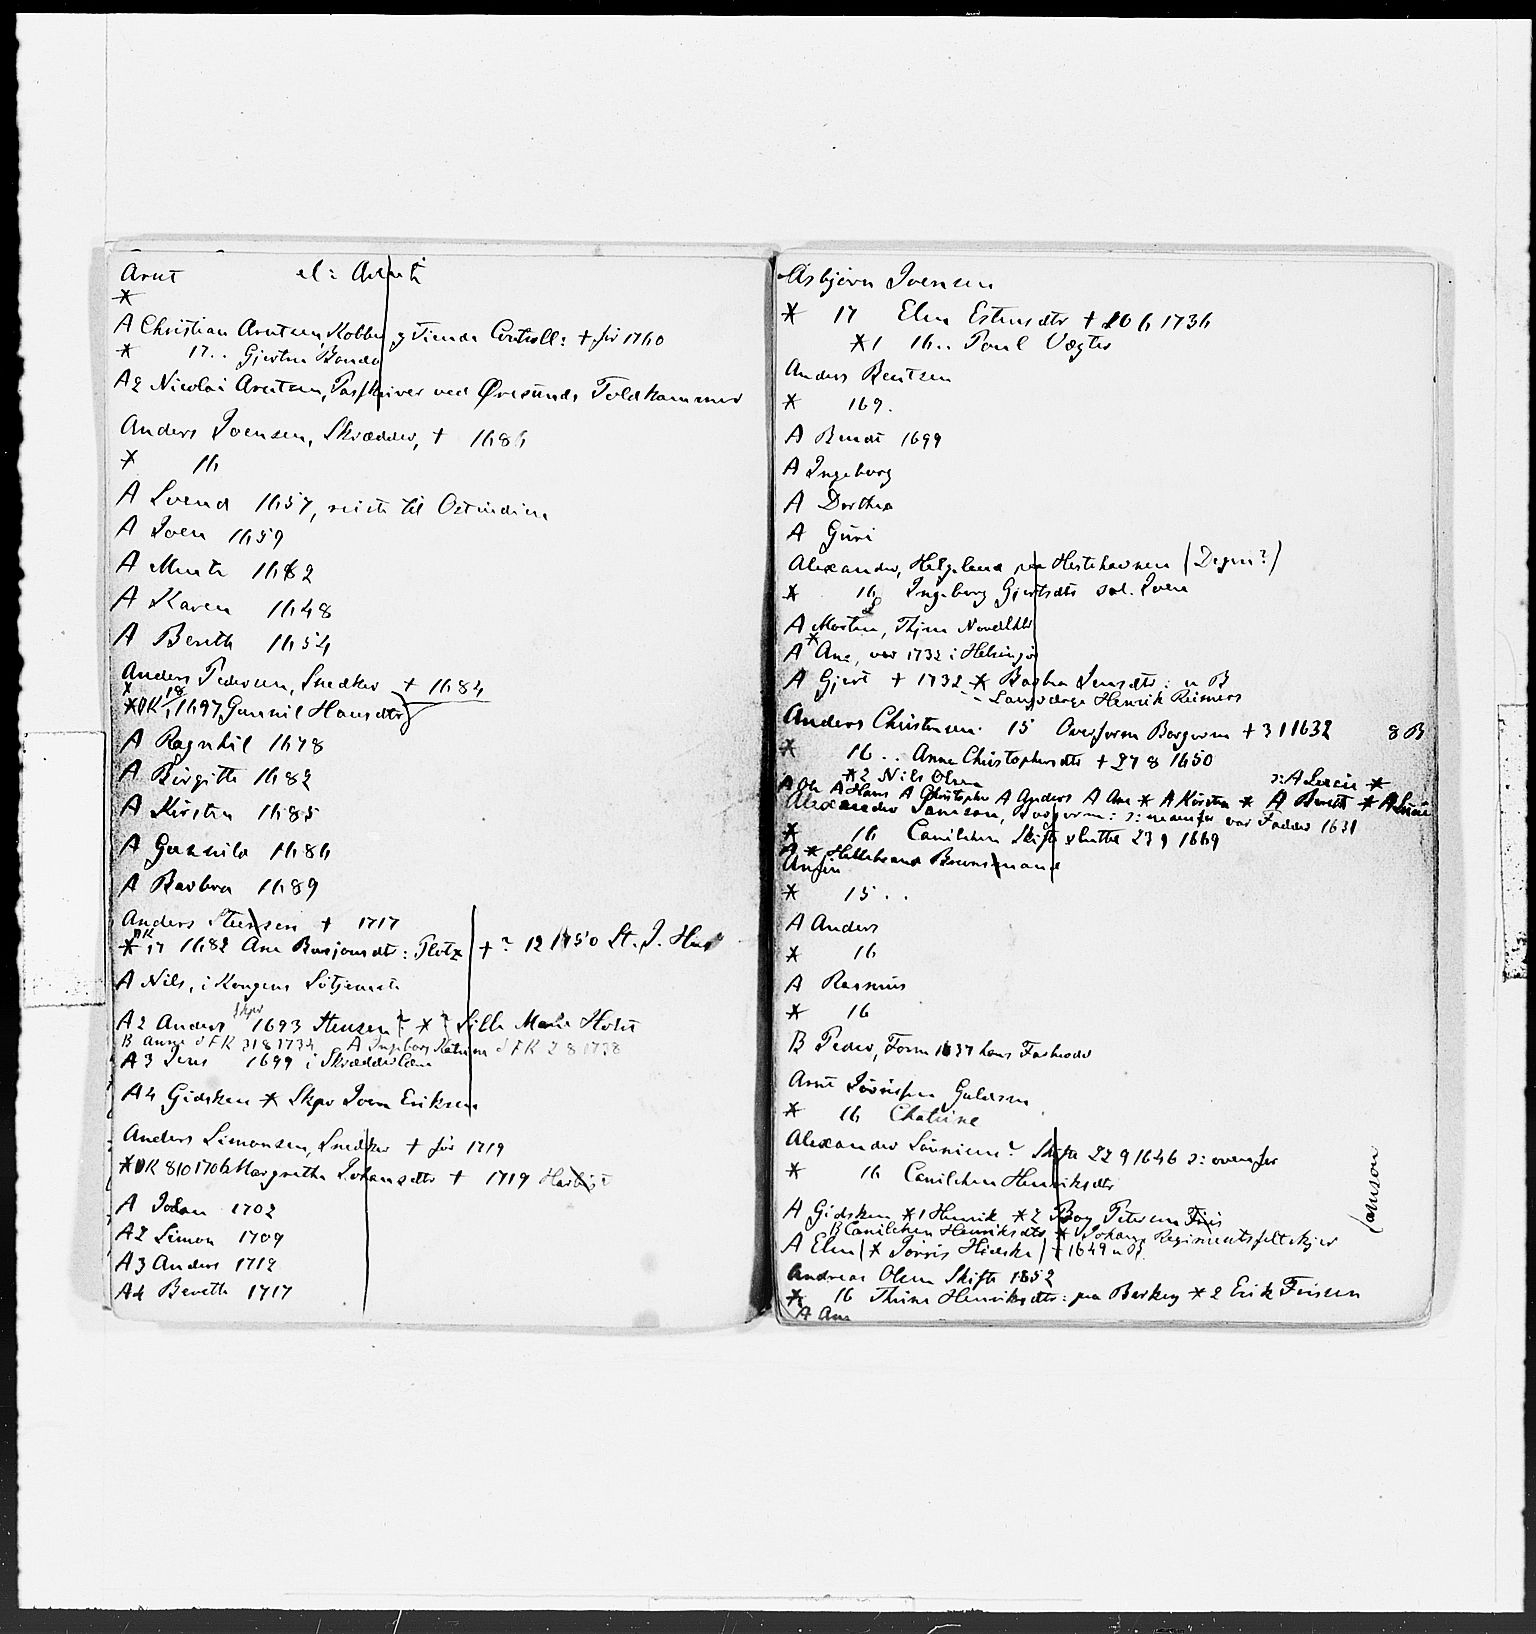 Arnt el: Arent
*
A Christian Arntsen, Kobber og Tiende Controll: † før 1760
* 17.. Gjertru Bonde
A2 Nicolai Arntsen, Passkriver ved Øresunds Toldkammer
Anders Joensen, Skrædder, † 1686
* 16
A Svend 1657, reiste til Ostindien
A Joen 1659
A Mrete 1682
A Karen 1648
A Bereth 1654
Anders Pedersen, Snedker † 1684
*DK 18/1 1697 Gunnil Hansdtr
A Ragnhil 1678
A Birgitte 1682
A Kirsten 1685
A Gunnild 1686
A Barbra 1689
Anders Stensen † 1717
* DK 17 1682 Ane Basjonsdt: Plotz † ? 12 1750 St. J. Hus
A Nils, i Kongens Livtjeneste
A2 Anders Skpr 1693 Stensen? * ? Sille Marie Holst
B Anne d FK 318 1734 A Ingeborg Katrina d FK 2 8 1738
A3 Jens 1699 i Skrædderlære
A4 Gidsken * Skpr Joen Eriksen
Anders Simonsen, Snedker † før 1719
*DK 810 1706 Margrethe Johansdtr † 1719
A Johan 1702
A2 Simon 1709
A3 Anders 1712
A4 Bereth 1717
Asbjørn Joensen
* 17 Elen Estensdtr † 20 6 1736
*1 16.. Poul Vægter
Anders Bentsen
* 169.
A Bendt 1699
A Ingeborg
A Dorthea
A Guri
Alexander, Helgeland paa Hestehavnen (Degn?)
* 16 Ingeborg Gjertsdtr sal. Joens
A Morten, Thjen
A * Ane, var 1732 i Helsingør
A Gjert † 1732 * Barbra Jensdtr: u B
- Landsdrge Henrik Reimers
Anders Christensen. 15 Overform Borgerm † 3 1 1632 8 B
* 16.. Anne Christophersdtr † 27 8 1650
*2 Nils Olsen ɔ: A Lucie *
A Ole A Hans A Christopher A Anders A Ane * A Kirsten * A Berett * A Lucie
Alexander Jamson, Borgerm: ɔ: var Fadder 1631
* 16 Canilchen Skifte sluttet 23 9 1669
A * Hillebrand Brunsmand
Anfin
* 15..
A Anders
* 16
A Rasmus
* 16
B Peder, Form 1637 hans Farbroder
Arnt Jørrissen Guldsm
* 16 Chatrine
Alexander Sørnsen? Skifte 22 9 1646 ɔ: ovenfor
* 16 Canilchen Henriksdtr
A Gidsken *1 Henrik *2 Boy Petersen Friis
B Canilchen Henriksdtr * Johan Regimentsfeltskjer
A Elen (* Jørris Hidske) † 1649 u B.
Andreas Olsen Skifte 1652
* 16 Thrine Henriksdtr: paa Berkeg *2 Erik Friisen
A Ane
Jamson